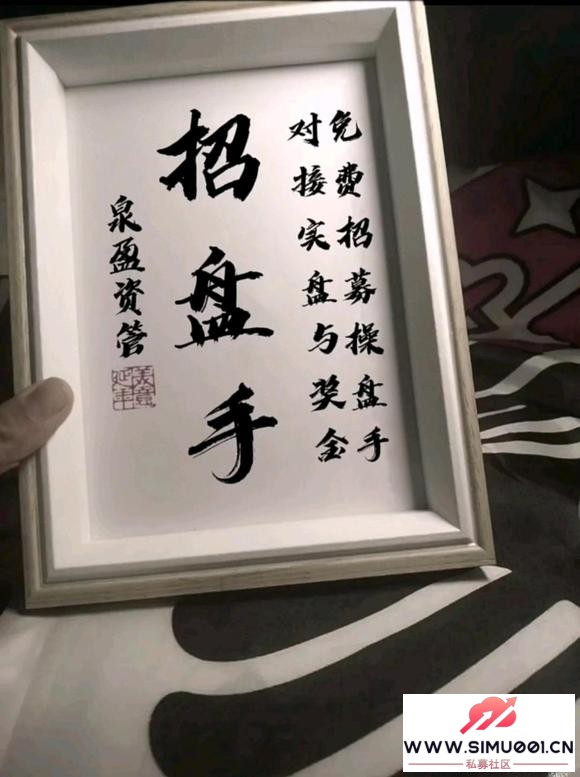 免费招募操盘手
对接实盘与奖金
招盘手
泉盈资管
WWW.SIMU001.CN
私募社区